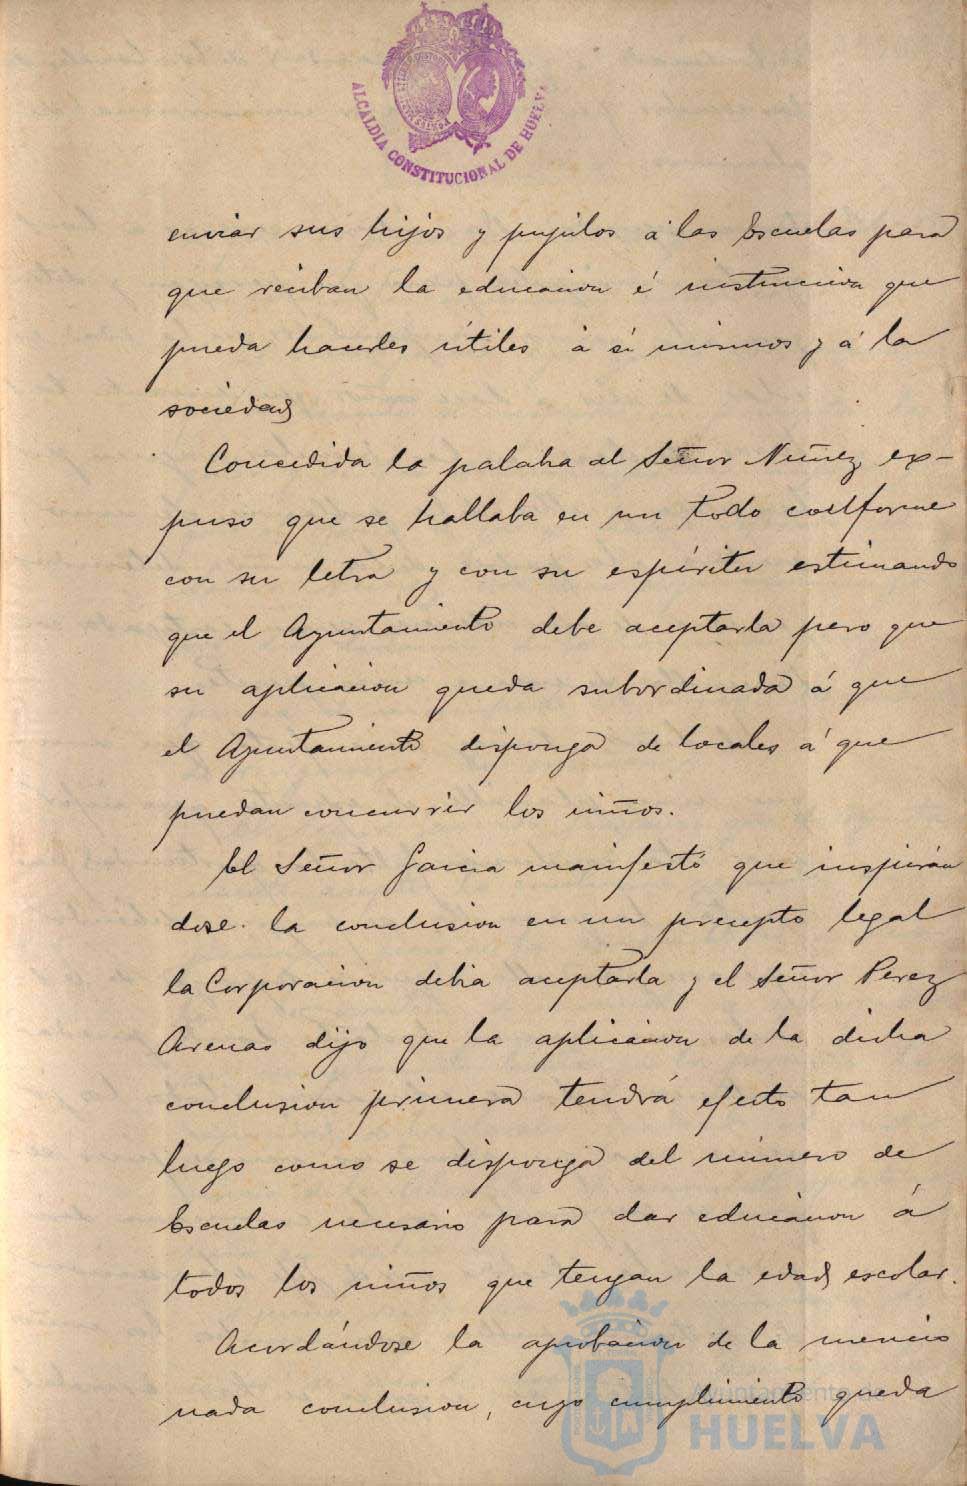 ALCALDIA CONSTITUCIONAL DE HUELVA
enviar sus hijos y pupilos á las Escuelas para
que reciban la educacion é instruccion que
pueda hacerles útiles á sí mismos y á la
sociedad
Concedida la palabra al Señor Nuñez ex-
puso que se hallaba en un todo conforme
con su letra y con su espíritu estimando
que el Ayuntamiento debe aceptarla pero que
su aplicacion queda subordinada á que
el Ayuntamiento disponga de locales á que
puedan concurrir los niños.
El Señor Garcia manifestó que inspirán
dose la conclusion en un precepto legal
la Corporacion debia aceptarla y el Señor Perez
Arenas dijo que la aplicacion de la dicha
conclusion primera tendrá efecto tan
luego como se disponga del número de
Escuelas necesario para dar educacion á
todos los niños que tengan la edad escolar.
Acordándose la aprobacion de la mencio
nada conclusion, cuyo cumplimiento queda
Ayuntamiento de
HUELVA